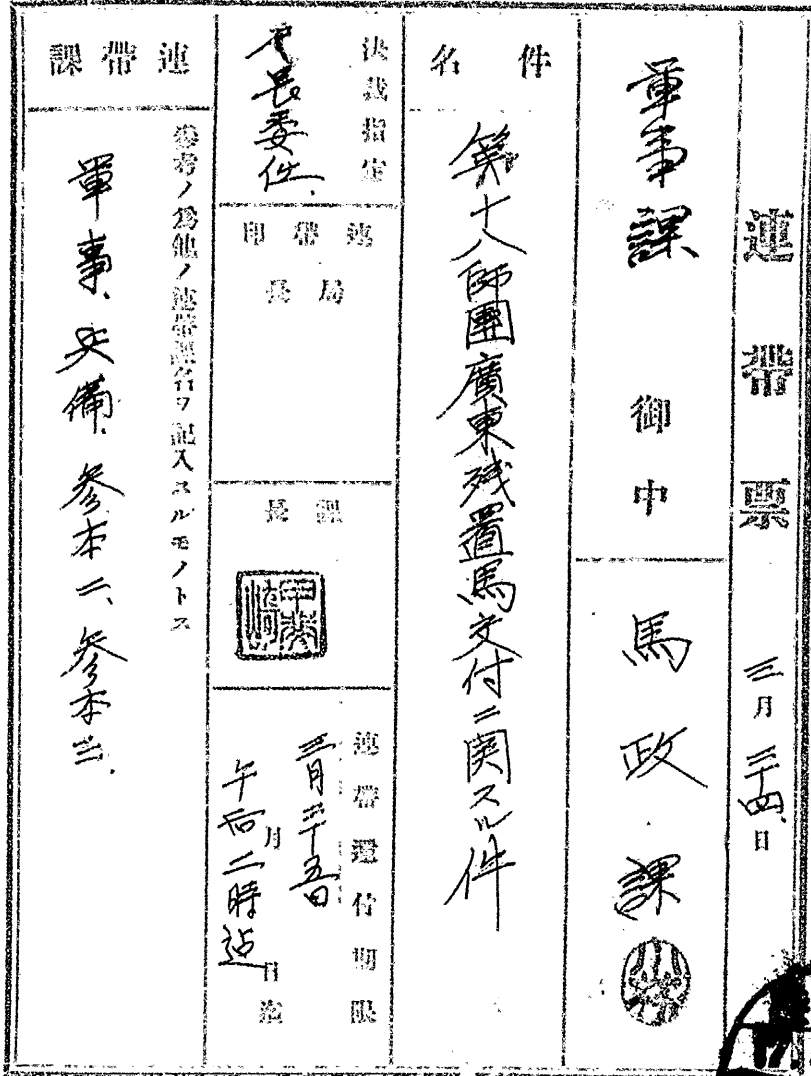 連帶票
三月二十四日
軍事課 御中
馬政課
件名
第十八師團廣東残置馬交付ニ関スル件
決裁指定
連帶印
局長
課長
甲斐崎
連帶還付期限
三月二十五日
午后二時迠
月 日 迄
連帶課
參考ノ為他ノ連帶課名ヲ記入スルモノトス
軍事、兵備、参本二、参本三、